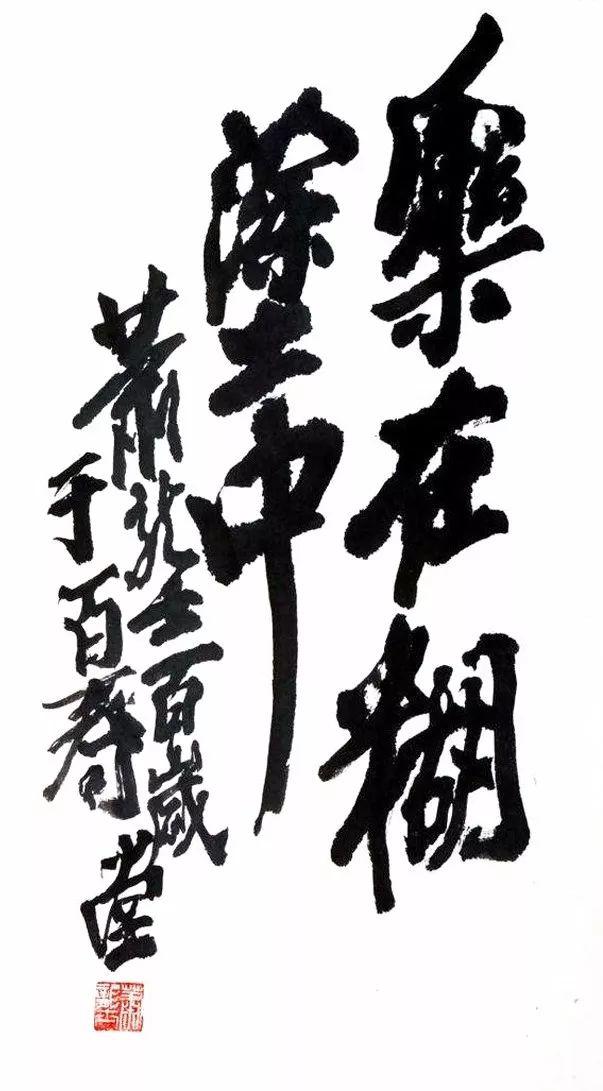 樂在糊
塗中
蕭龍士百歲
于百壽堂
蕭龍士